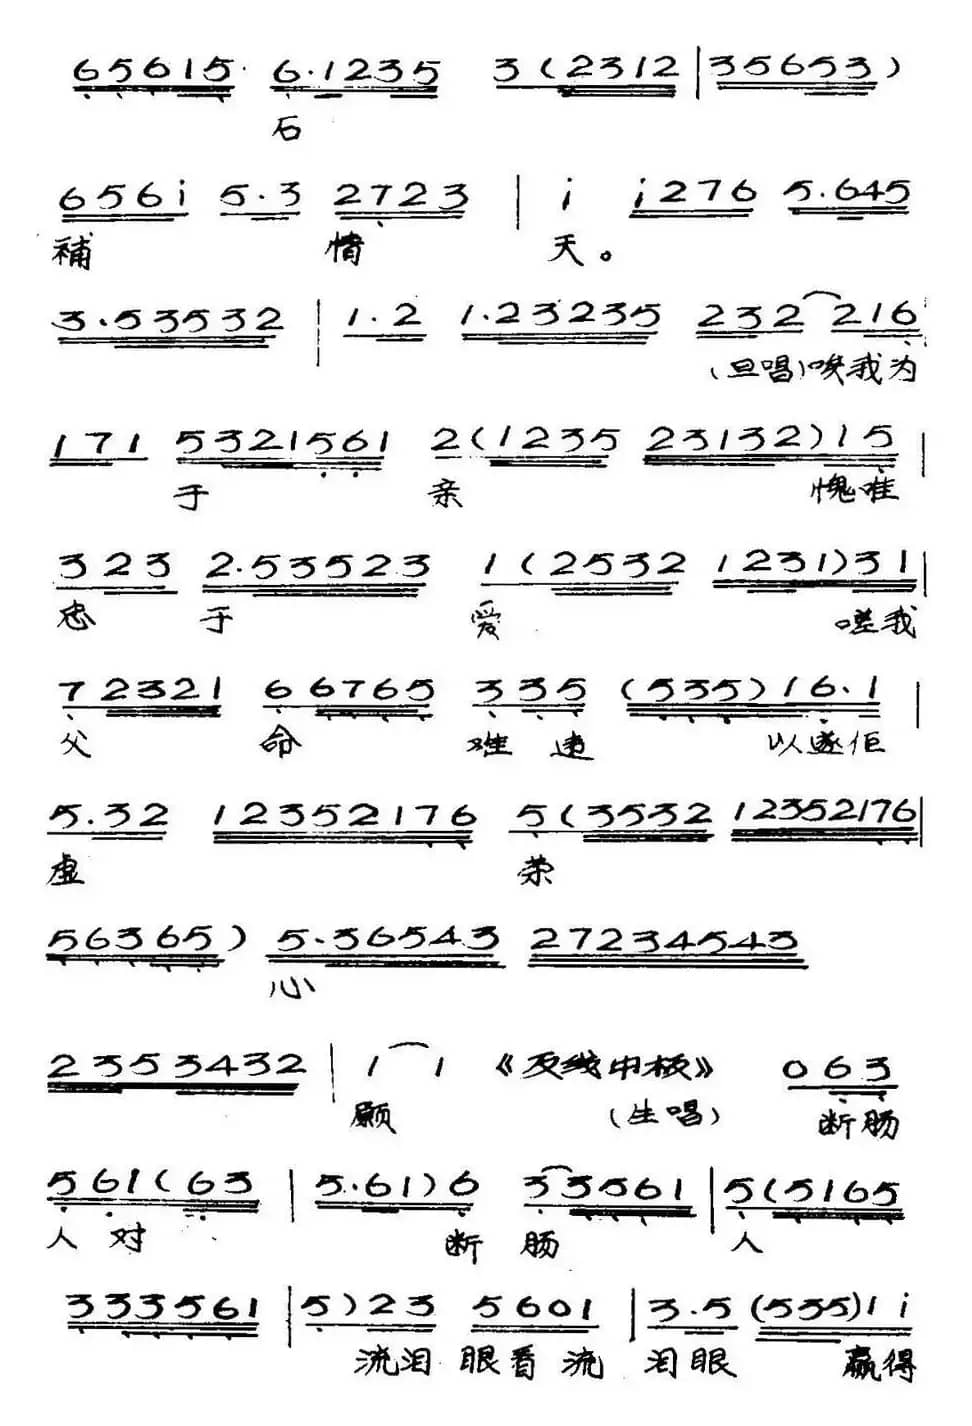 65615· 6·1235 3(2312 | 35653)
石
656i 5·3 2723 | i i276 5·645
補 情 天。
3·53532 | 1·2 1·23235 232 216
(旦唱)唉我为
171 5321561 2(1235 23132)15 |
于 亲 愧难
323 2·53523 1(2532 1231)31 |
忠 于 爱 嗟我
72321 66765 335 (535)16·1 |
父 命 难违 以遂佢
5·32 12352176 5(3532 12352176 |
虚 荣
56365) 5·36543 27234543
心
23533432 | 1 1 《反线中板》 063
愿 (生唱) 断肠
561(63 | 5·61)6 33561 | 5(5165
人对 断肠 人
333561 | 5)23 5601 | 3·5(535)1i
流泪 眼看流 泪眼 赢得